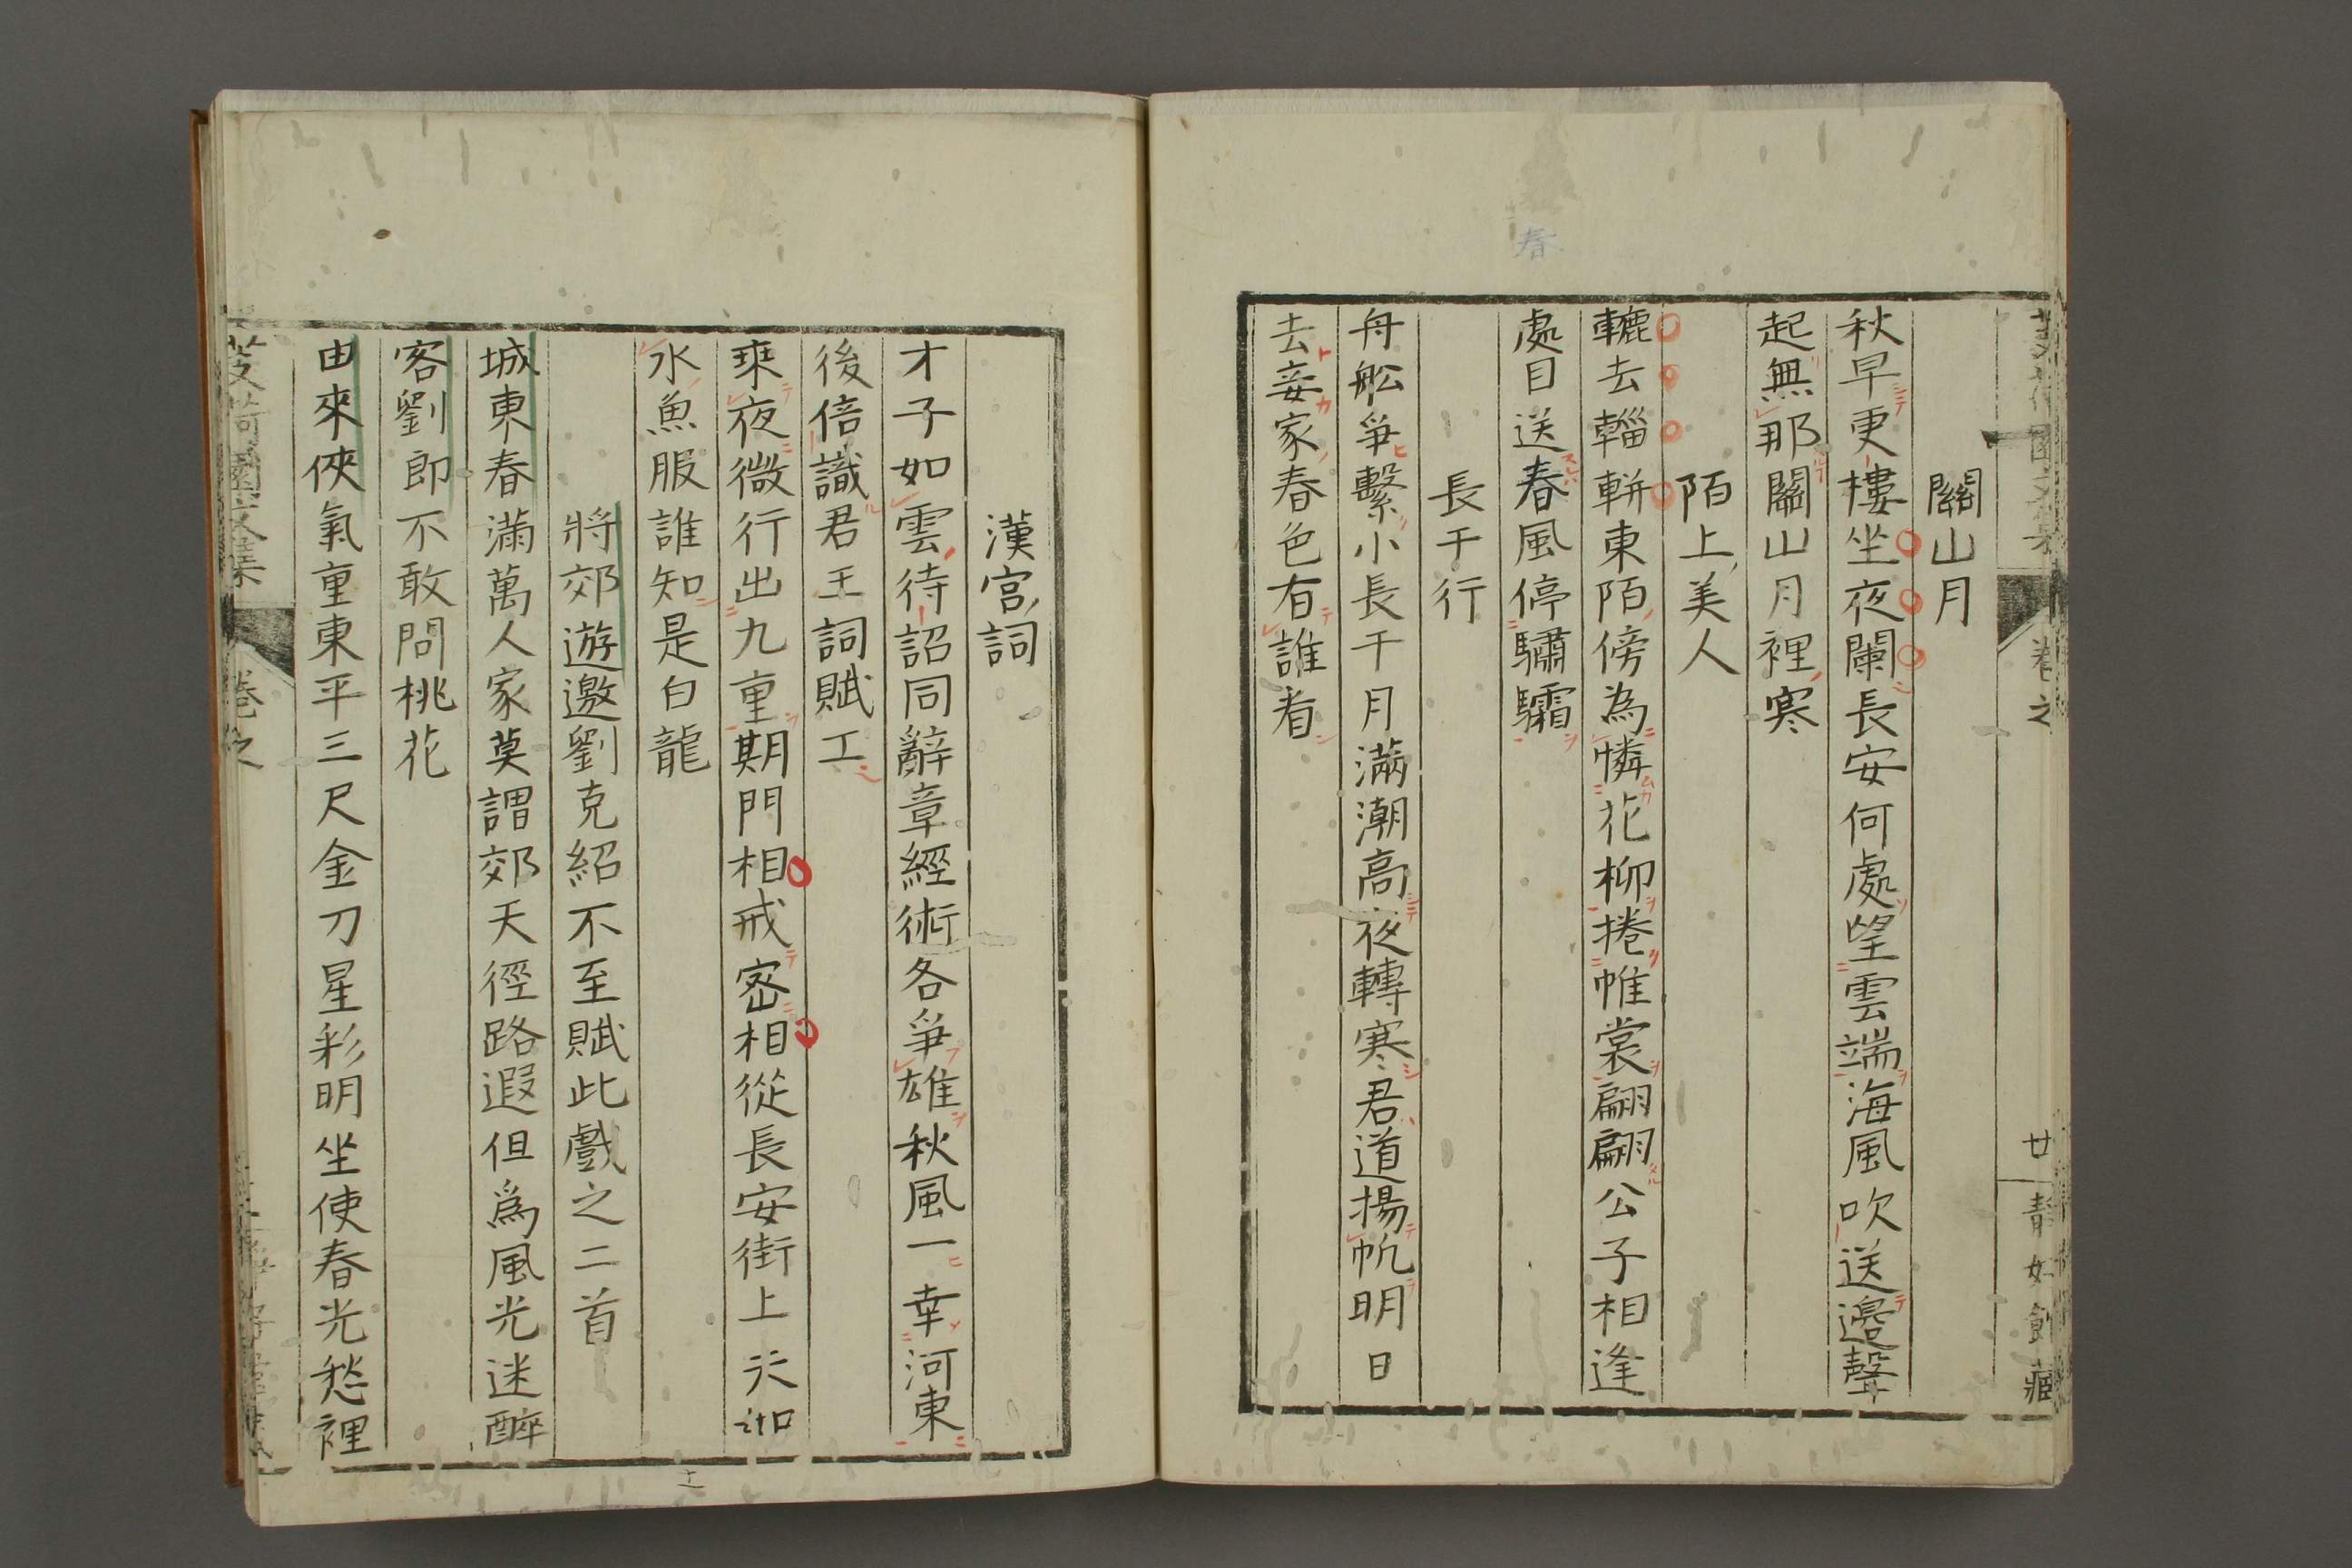 關山月
秋早更樓坐夜闌長安何處望雲端海風吹送邊聲
起無那關山月裡寒
陌上美人
轆去輜軿東陌傍為憐花柳捲帷裳翩翩公子相逢
處目送春風停驌驦
長干行
舟舩爭繫小長干月滿潮高夜轉寒君道揚帆明日
去妾家春色有誰看
春
漢宮詞
才子如雲待詔同辭章經術各爭雄秋風一幸河東
後倍識君王詞賦工
乘夜微行出九重期門相戒密相從長安街上
水魚服誰知是白龍
將郊遊邀劉克紹不至賦此戲之二首
城東春滿萬人家莫謂郊天徑路遐但爲風光迷醉
客劉郎不敢問桃花
由來俠氣重東平三尺金刀星彩明坐使春光愁裡
卷之